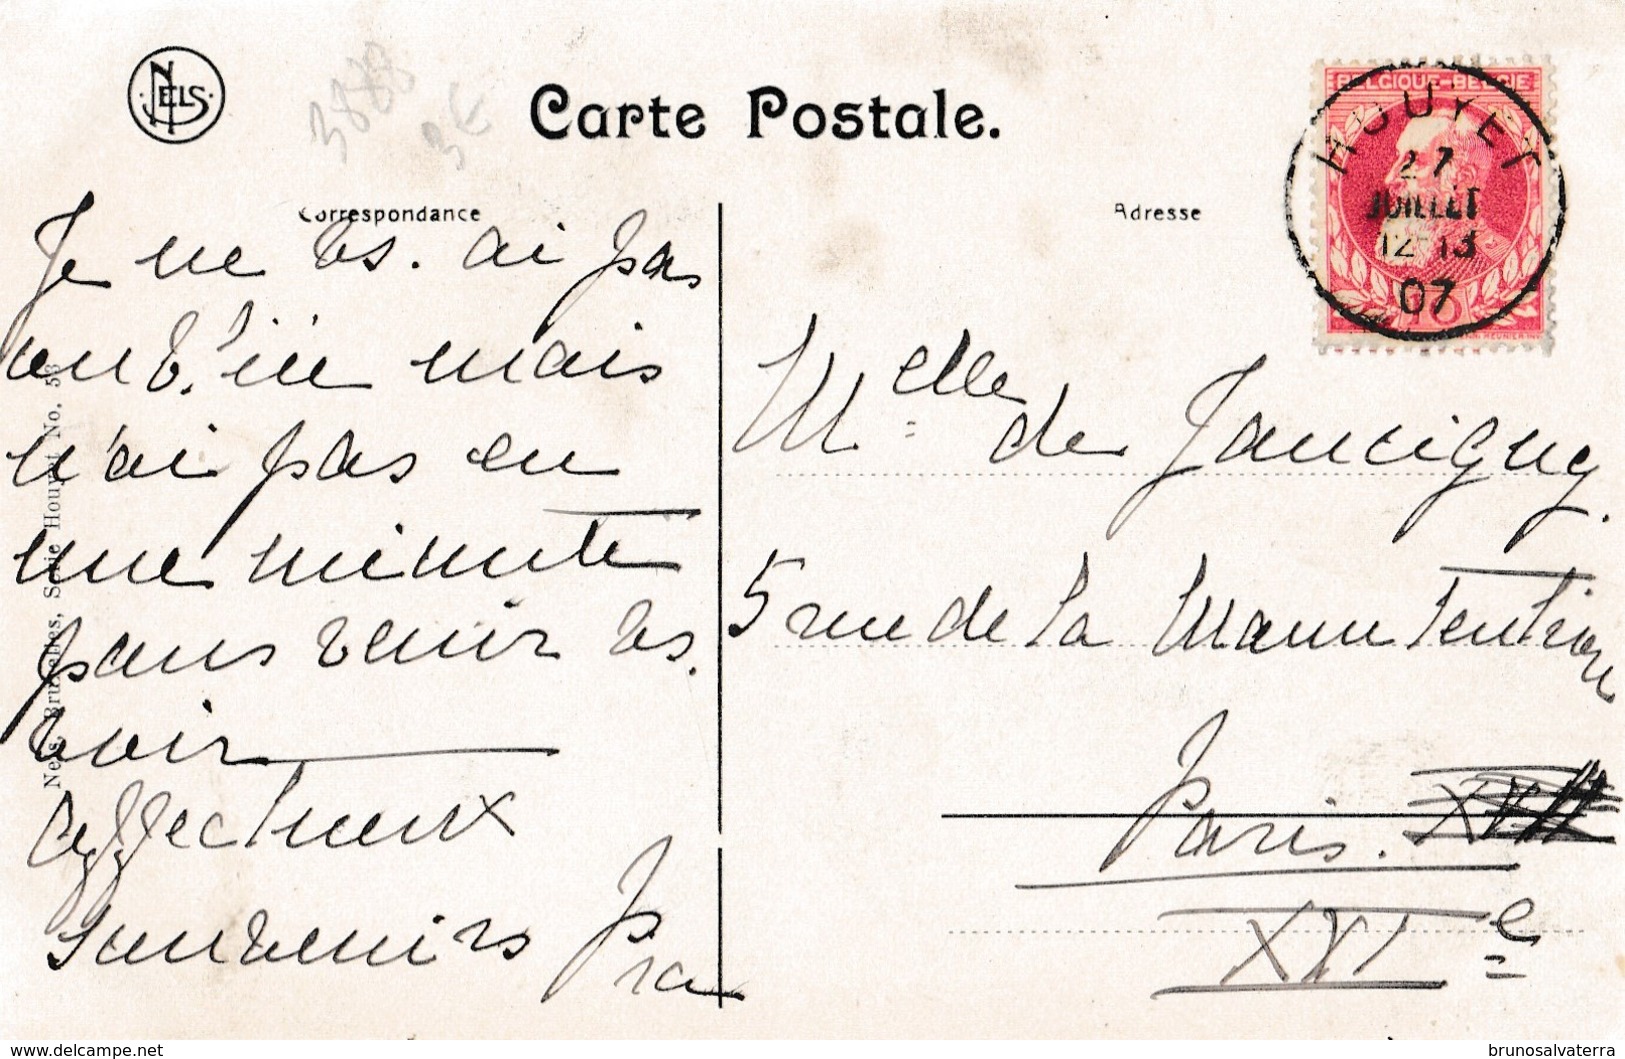 NELS
3888
3€
Carte Postale.
Correspondance
Adresse
BELGIQUE-BELGIE
HOUYET
27
JUILLET
12-13
07
10
Je ne vs. ai pas
oublié mais
n'ai pas eu
une minute
pour venir vs.
voir
Affectueux
souvenirs
Melle de Jaucigny.
5 rue de la Manutention
Paris. XVII
XVIe
Nels, Bruxelles, Serie Houyet No. 58
delcampe.net
brunosalvaterra